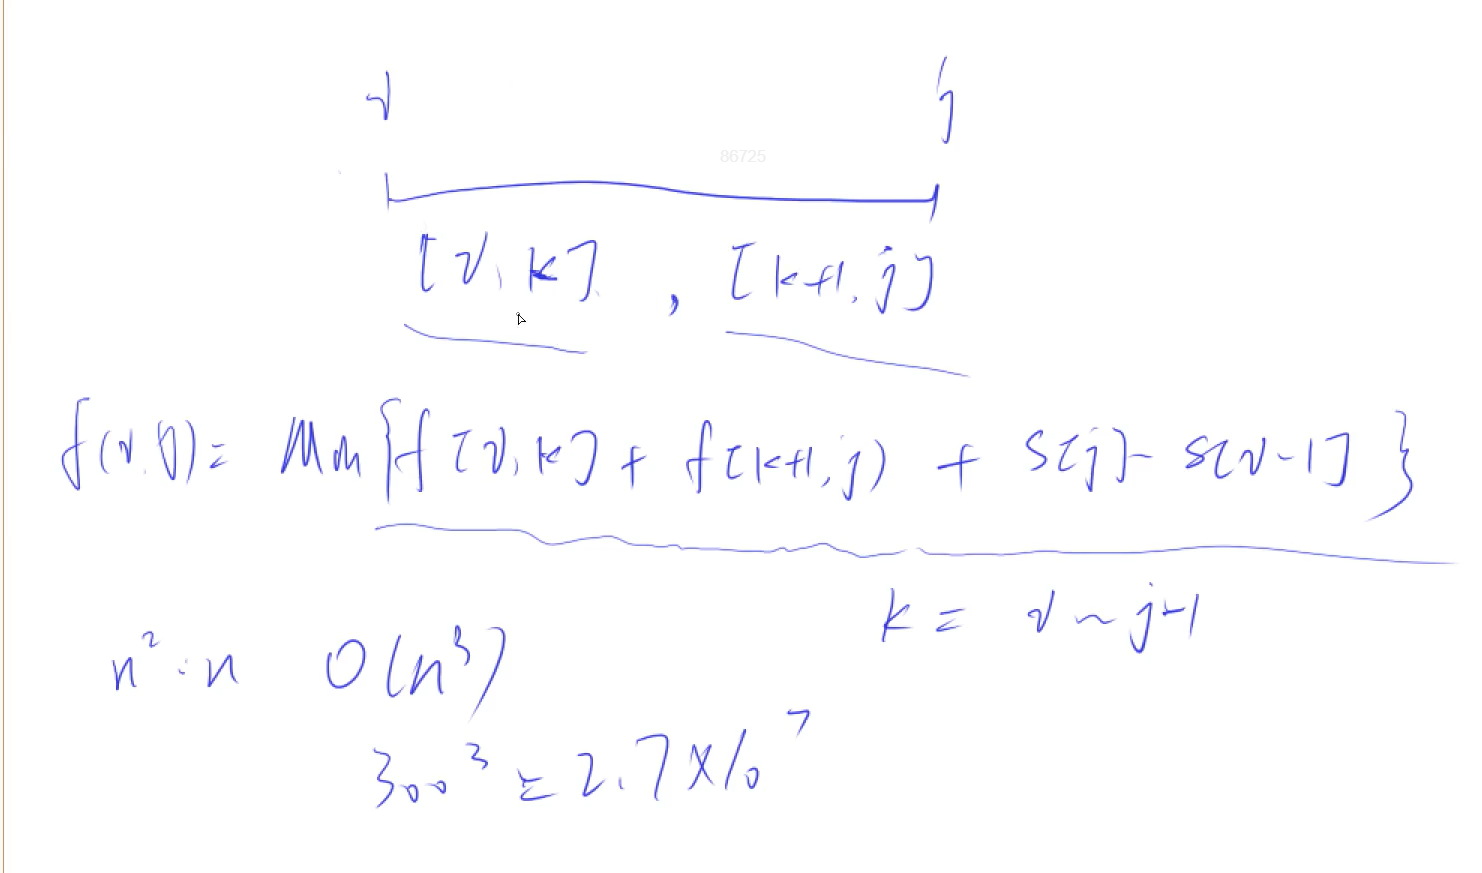 i j
86725
[i, k] , [k+1, j]
f(i, j) = Min{f[i, k] + f[k+1, j) + S[j] - S[i-1]}
k = i ~ j-1
n² · n O(n³)
300³ = 2.7 × 10⁷